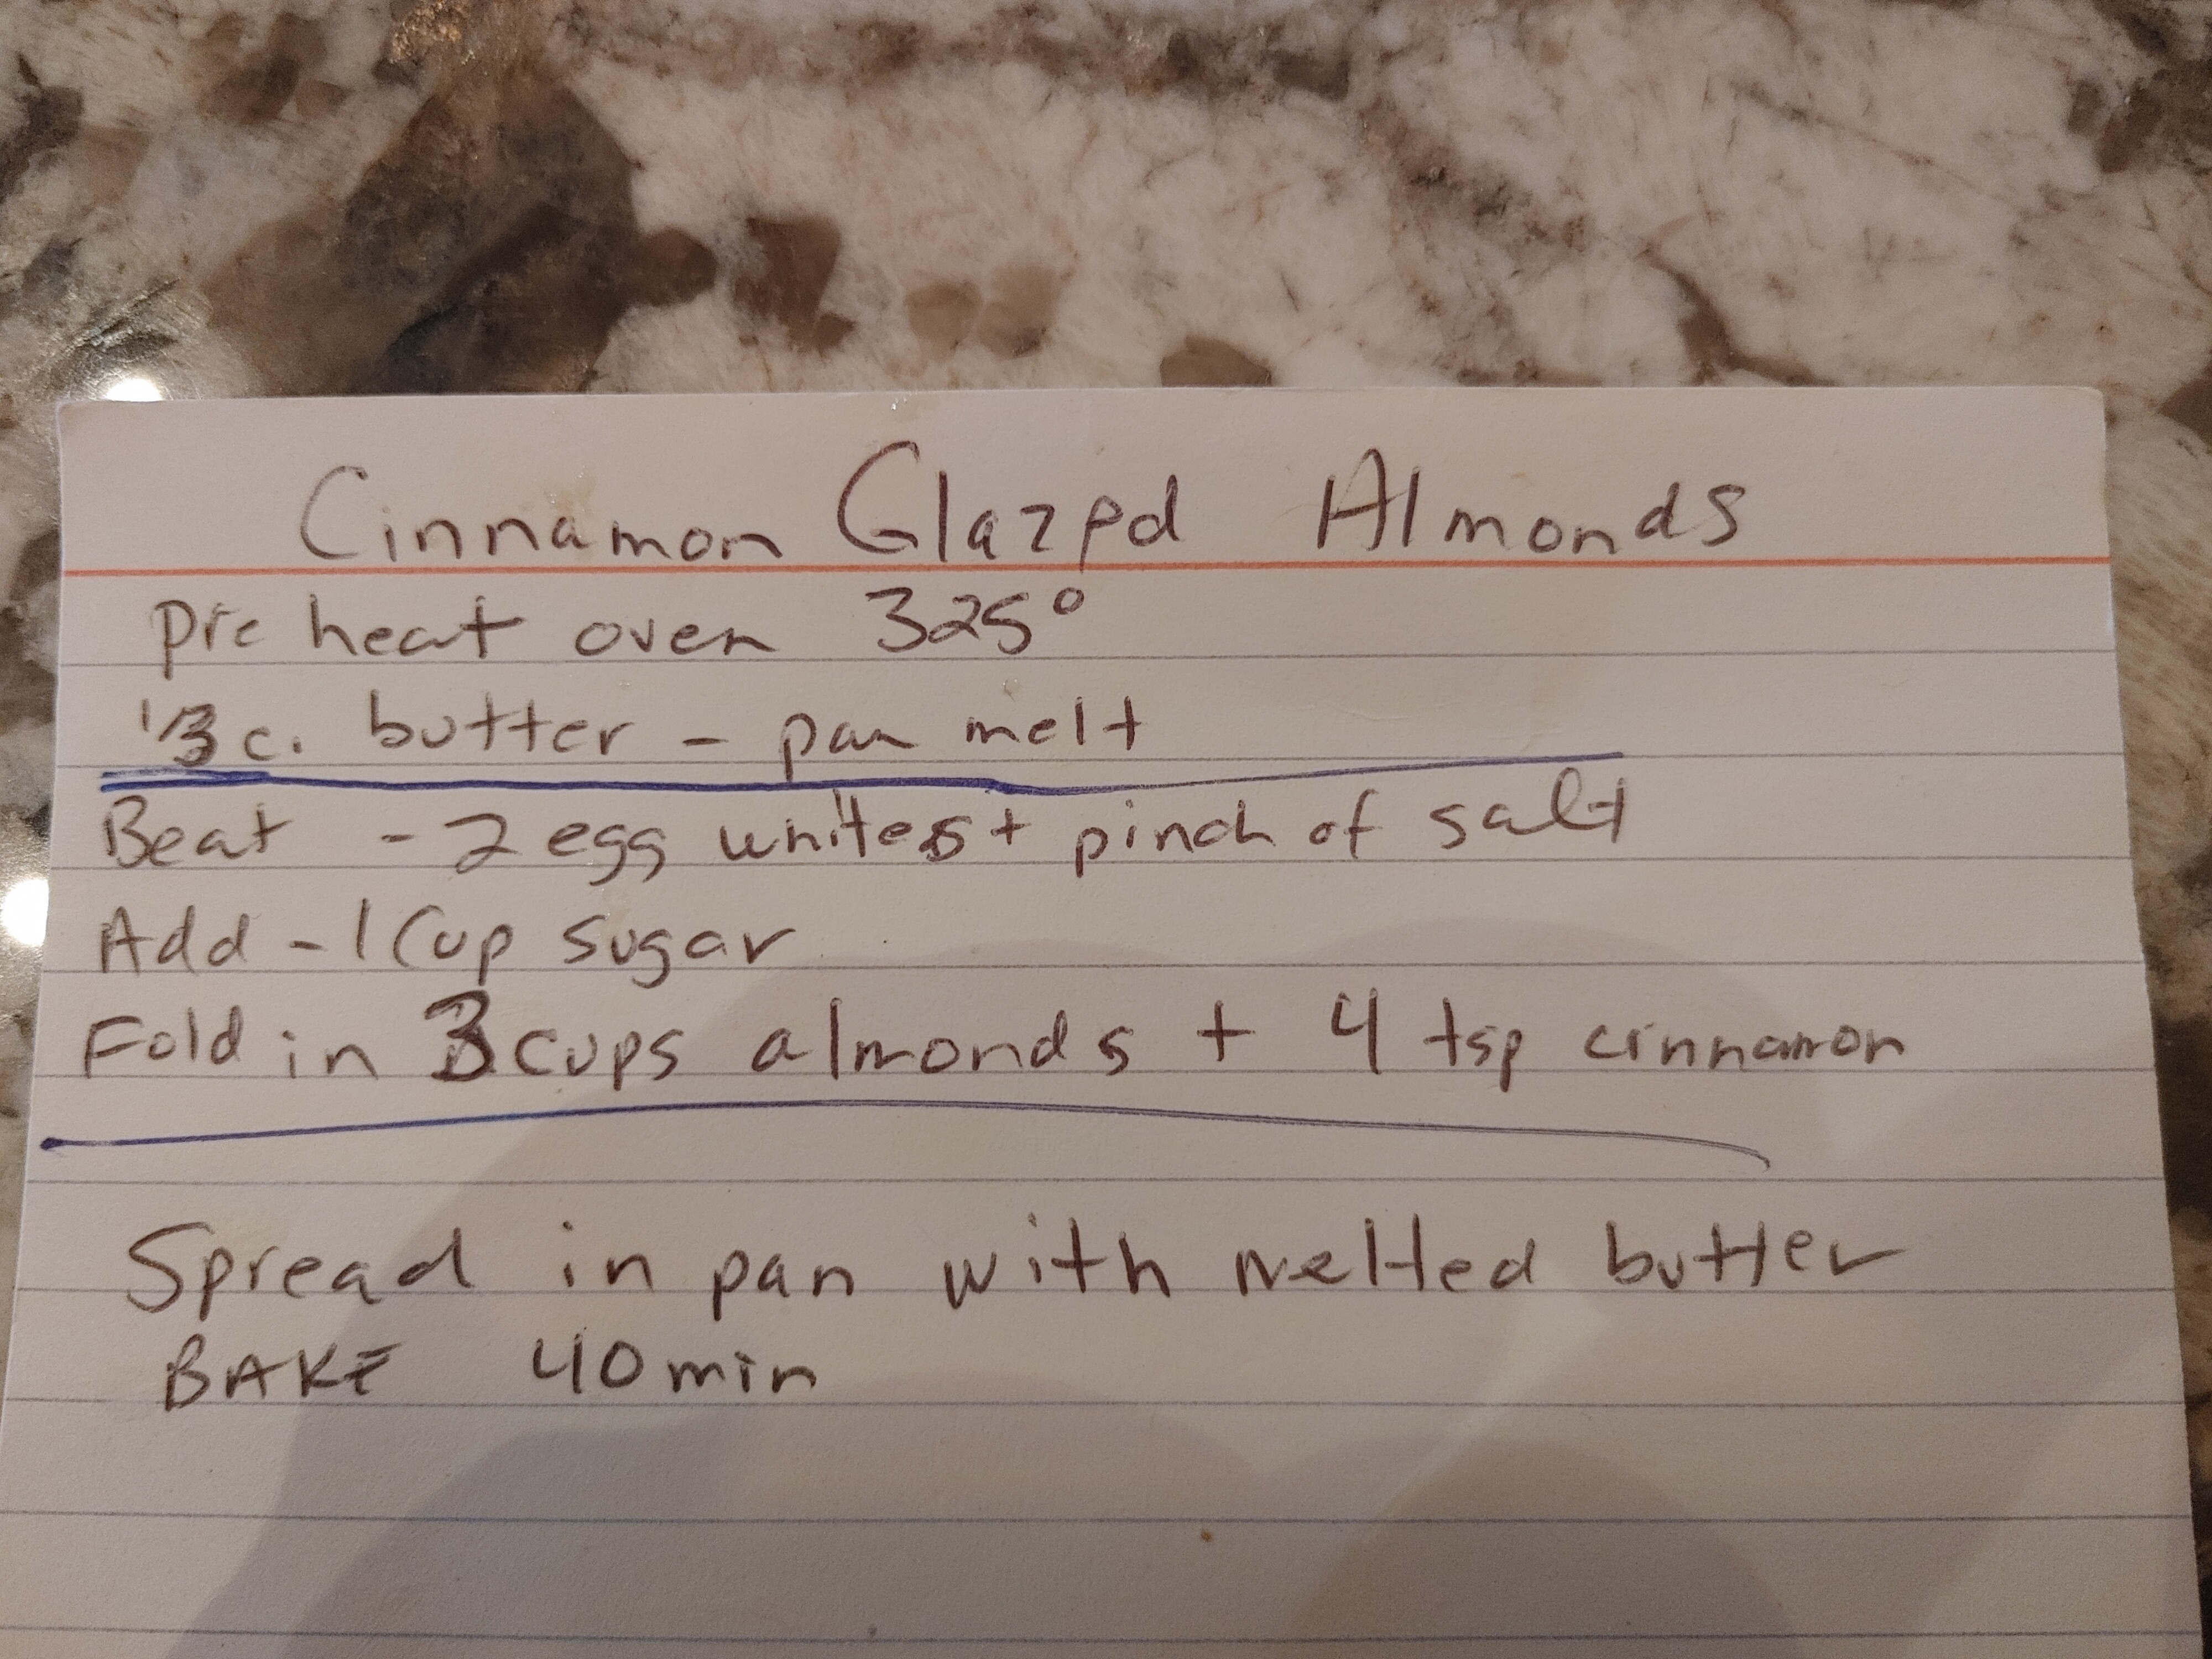 Cinnamon Glazed Almonds
Pre heat oven 325°
1/3 c. butter - pan melt
Beat - 2 egg whites + pinch of salt
Add - 1 Cup sugar
Fold in 3 cups almonds + 4 tsp cinnamon
Spread in pan with melted butter
BAKE 40 min